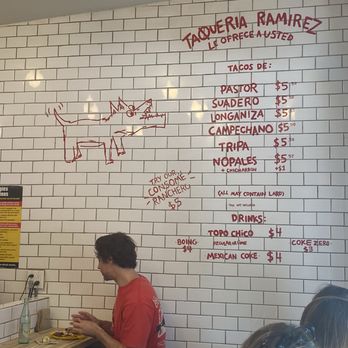 TAQUERIA RAMIREZ
LE OFRECE A USTED
TACOS DE:
PASTOR $5
SUADERO $5
LONGANIZA $5
CAMPECHANO $5
TRIPA $5
NOPALES $5
+ CHICHARRON +$1
(ALL MAY CONTAIN LARD)
TRY OUR
CONSOME
RANCHERO
$5
DRINKS:
TOPO CHICO $4
BOING
$4
COKE ZERO
$3
MEXICAN COKE $4